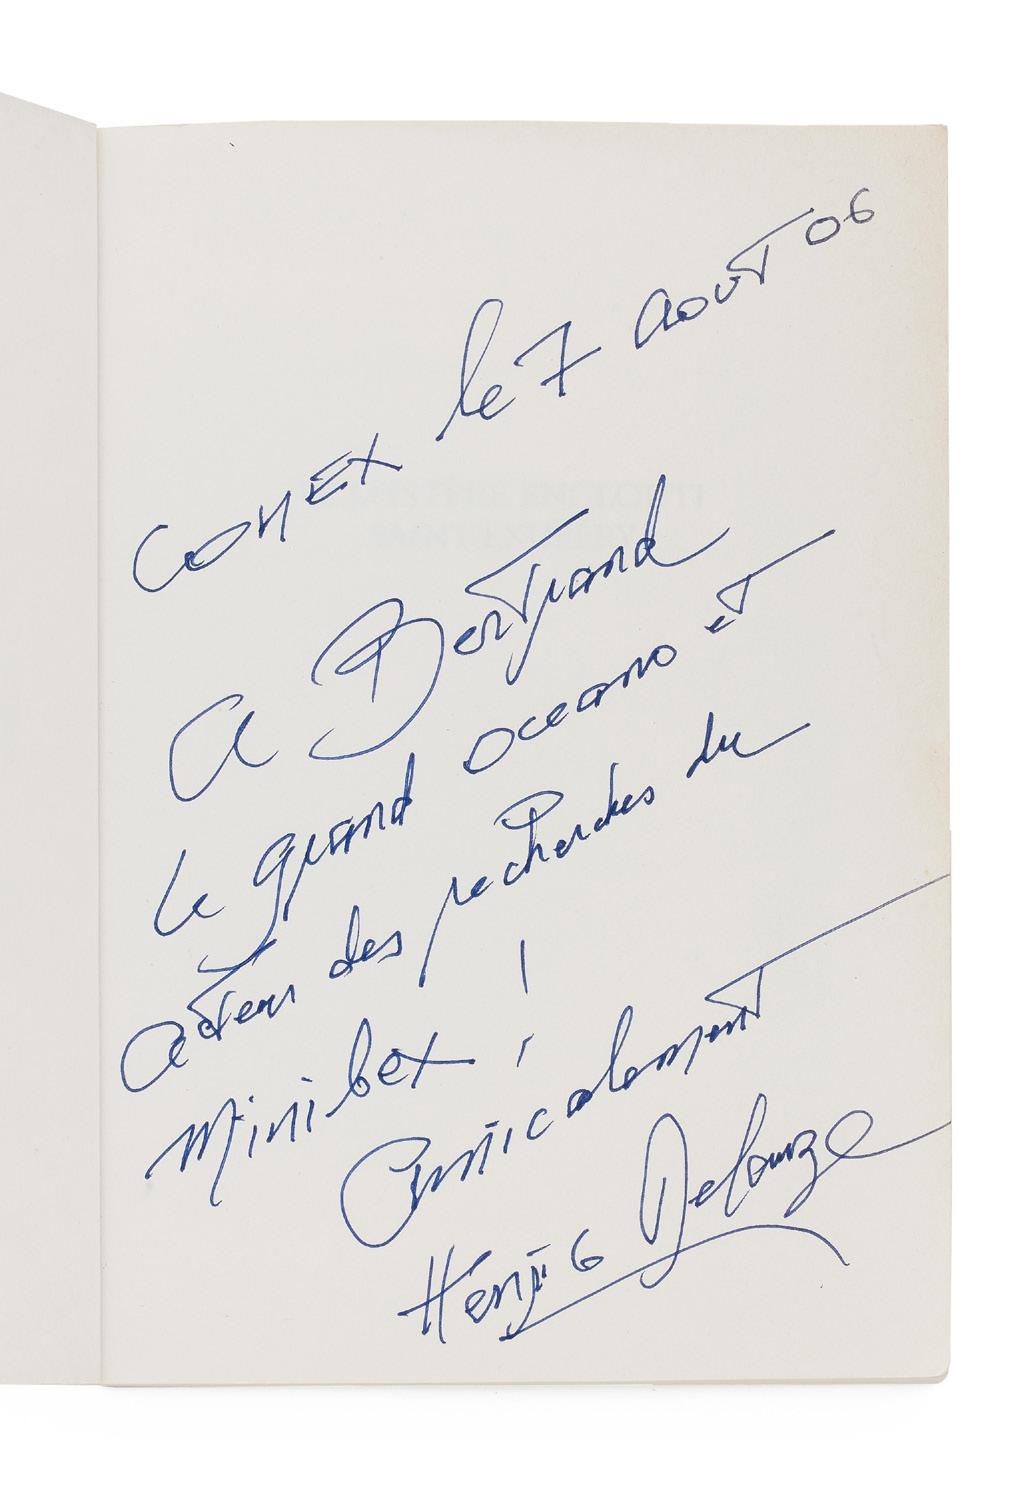 COMEX le 7 Aout 06
A Bertrand
le grand oceano et
acteur des recherches du
Minibex !
Amicalement
Henri G Delauze